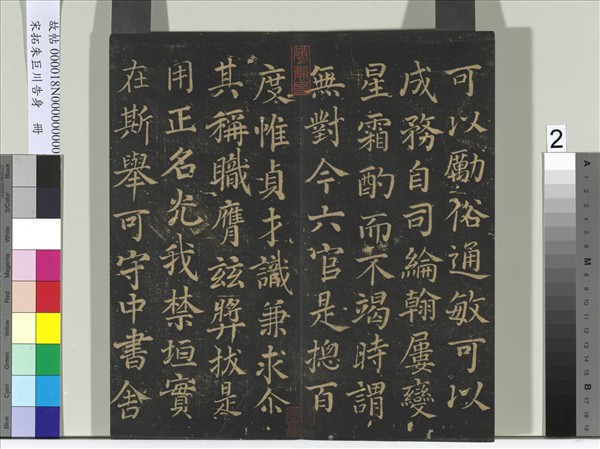 可以勵俗通敏可以
成務自司綸翰屢變
星霜酌而不竭時謂
無對今六官是揔百
度惟貞才識兼求尒
其稱職膺茲奬拔是
用正名光我禁垣實
在斯舉可守中書舍
故帖 000018N000000000
宋拓朱巨川告身 冊
2